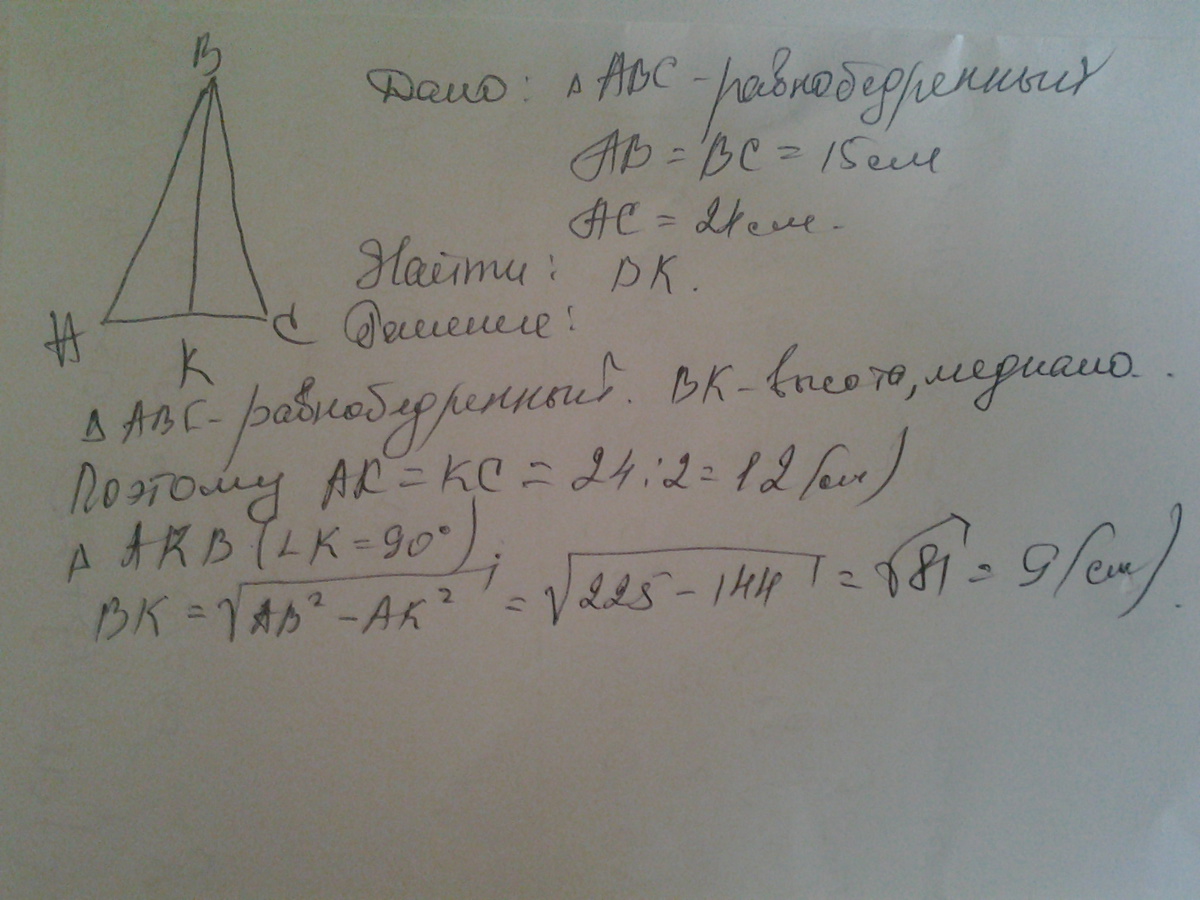 B
Дано: △ ABC - равнобедренный
AB = BC = 15 см
AC = 24 см.
Найти: BK.
A
C
Решение:
K
△ ABC - равнобедренный. BK - высота, медиана.
Поэтому AK = KC = 24 : 2 = 12 (см)
△ AKB (∠K = 90°);
BK = √(AB² - AK²) = √(225 - 144) = √81 = 9 (см).